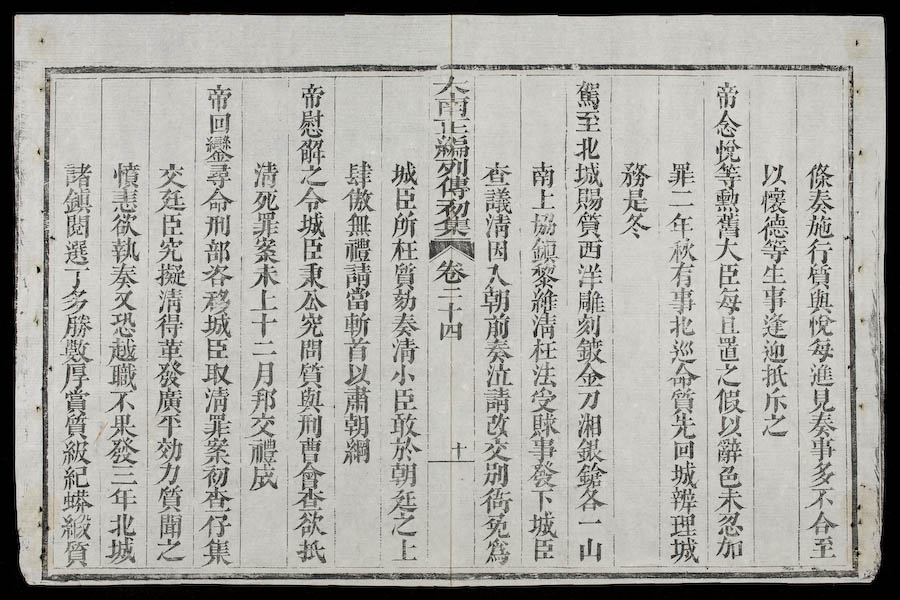 條奏施行質與悅每進見奏事多不合至
以懷德等生事逢迎抵斥之
帝念悅等勳舊大臣每且置之假以辭色未忍加
罪二年秋有事北巡命質先回城辨理城
務是冬
駕至北城賜質西洋雕刻鍍金刀湘銀鎗各一山
南上協鎮黎維清枉法受賕事發下城臣
查議清因入朝前奏泣請改交別衙免為
大南正編列傳初集 卷二十四 十
城臣所枉質劾奏清小臣敢於朝廷之上
肆傲無禮請當斬首以肅朝綱
帝慰解之令城臣秉公究問質與刑曹會查欲抵
清死罪案未上十二月邦交禮成
帝回鑾尋命刑部咨移城臣取清罪案初查仔集
交廷臣究擬清得革發廣平効力質聞之
憤恚欲執奏又恐越職不果發三年北城
諸鎮閱選丁多勝數厚賞質級紀蟒緞質